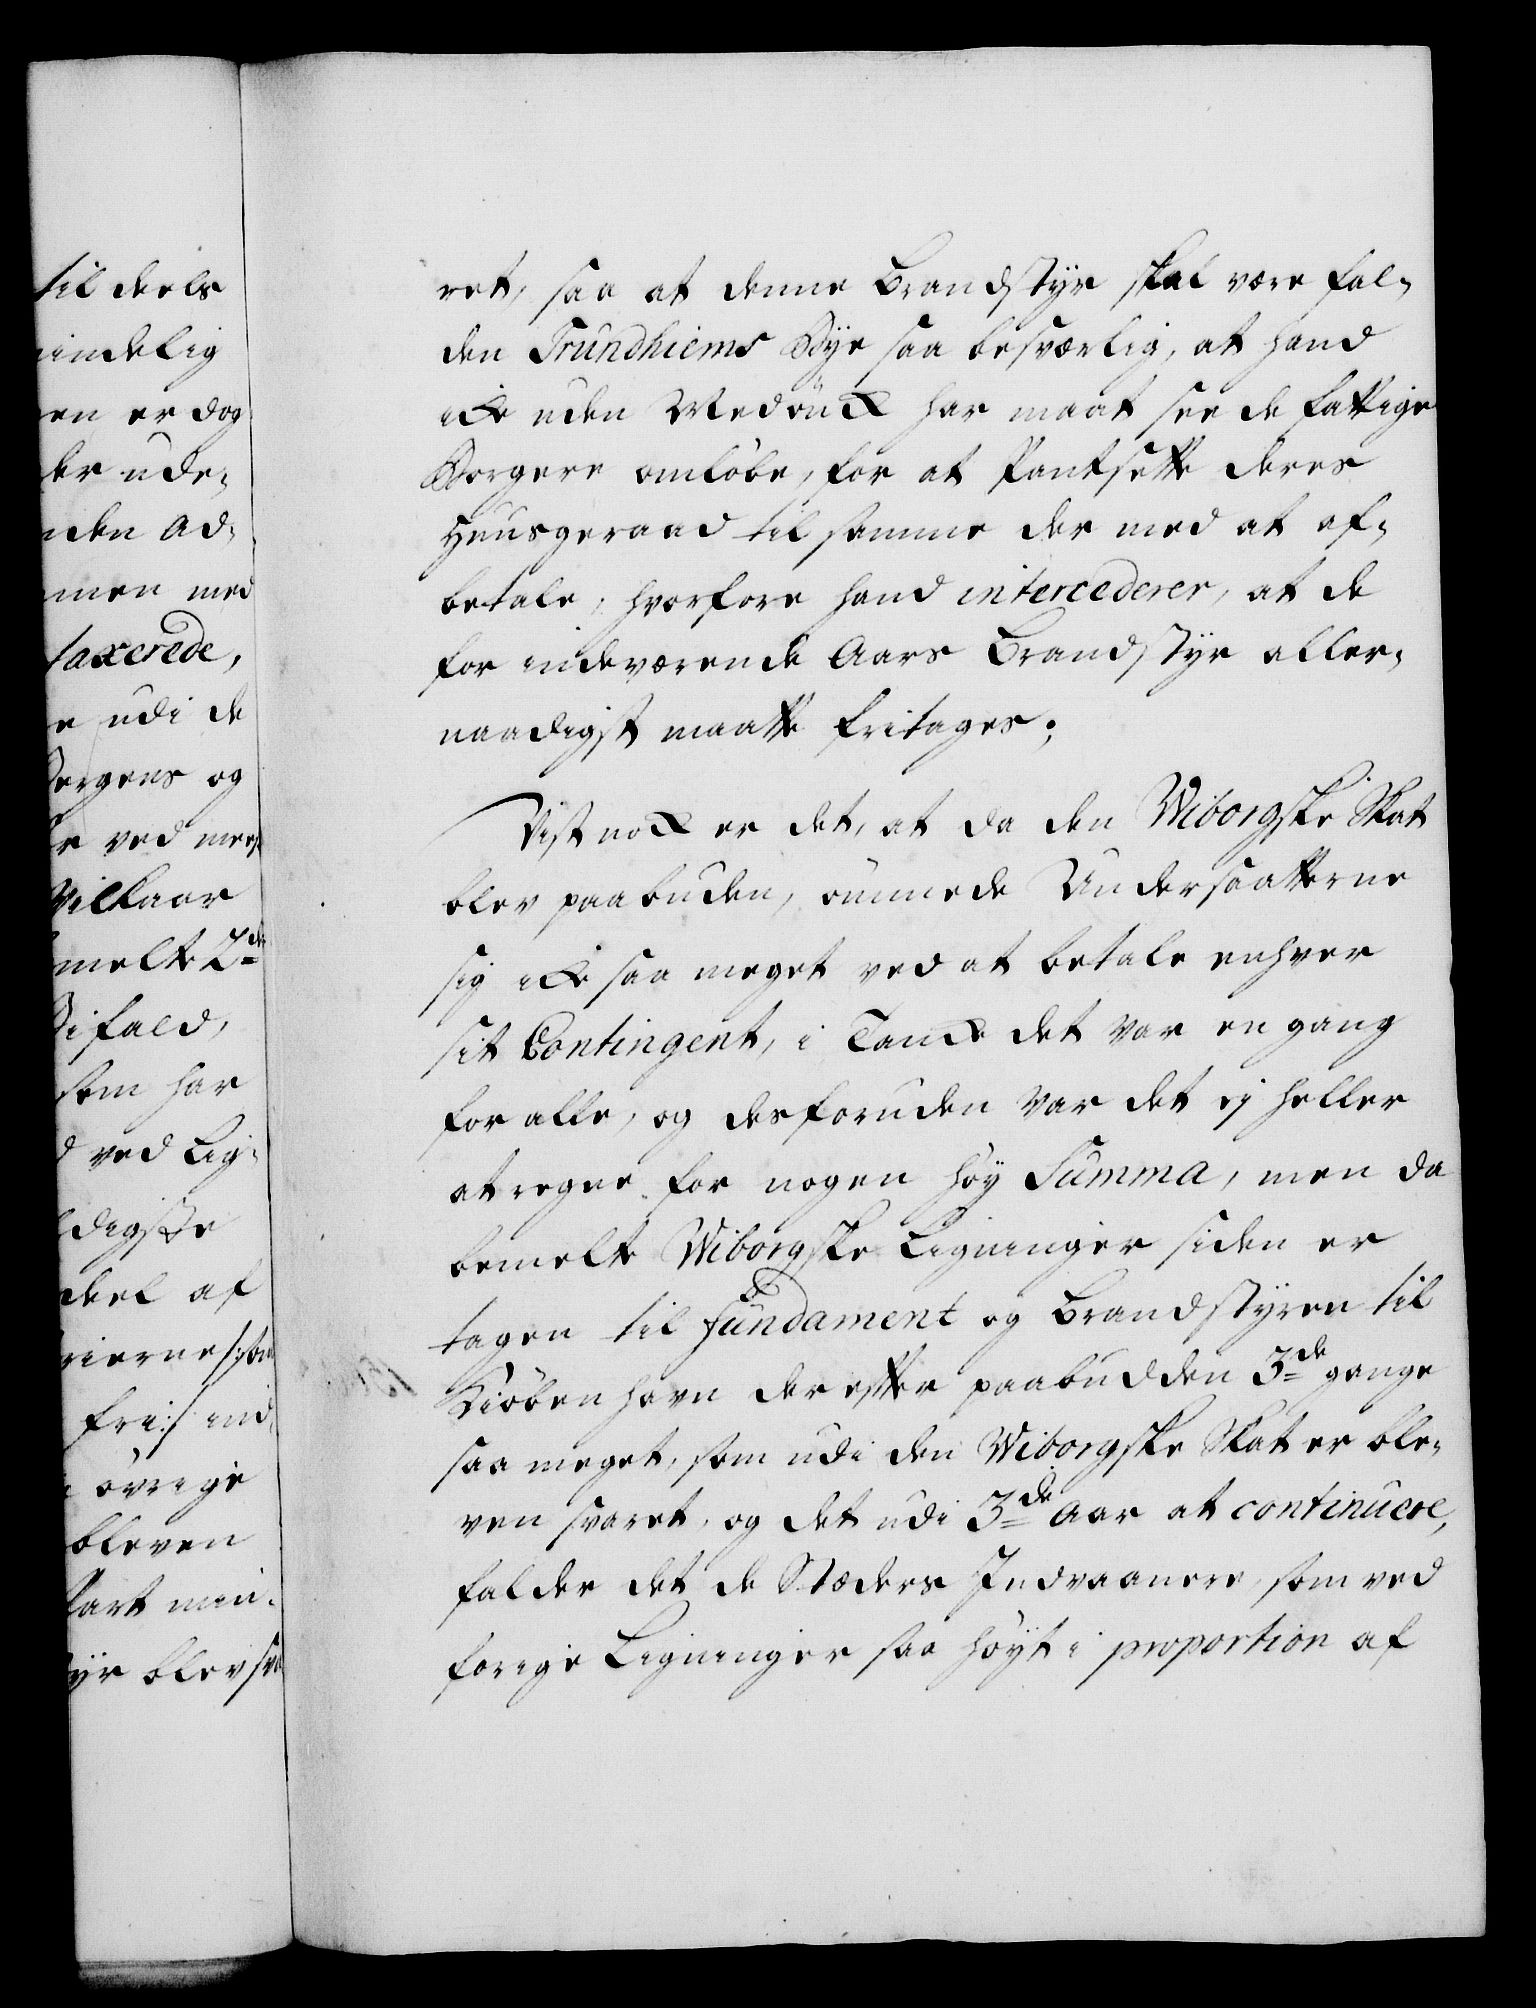 til deels
indelig
en er dog
der ude-
nden Ad-
men med
taxerede,
e udi de
Bergens og
ve ved meer
Vilkaar
melte 2de
Bifald,
som har
d ved Lig-
digste
deel af
rierne /:som
fri:/ ind
øvrige
bleven
Part min-
yr blev sva
ret, saa at denne Brandstyr skal være fal-
den Trundhiems Bye saa besværlig, at hand
icke uden Medynck har maat see de fattige
Borgere omløbe, for at Pantsette deres
Huusgeraad til samme der med at af-
betale, hvorfore hand intercederer, at de
for indeværende Aars Brandstyr aller-
naadigst maatte fritages;
Vist nock er det, at da den Wiborgske Skat
blev paabuden, ømmede Undersaatterne
sig icke saa meget ved at betale enhver
sit Contingent, i Tancke det var en gang
for alle, og desforuden var det ej heller
at regne for nogen høy Summa, men da
bemelte Wiborgske Ligninger siden er
tagen til Fundament og Brandstyren til
Kiøbenhavn derefter paabudden 3de gange
saa meget, som udi den Wiborgske Skat er ble-
ven svaret, og det udi 3de Aar at continuere,
falder det de Stæders Indvaanere, som ved
forige Ligninger saa høyt i proportion af